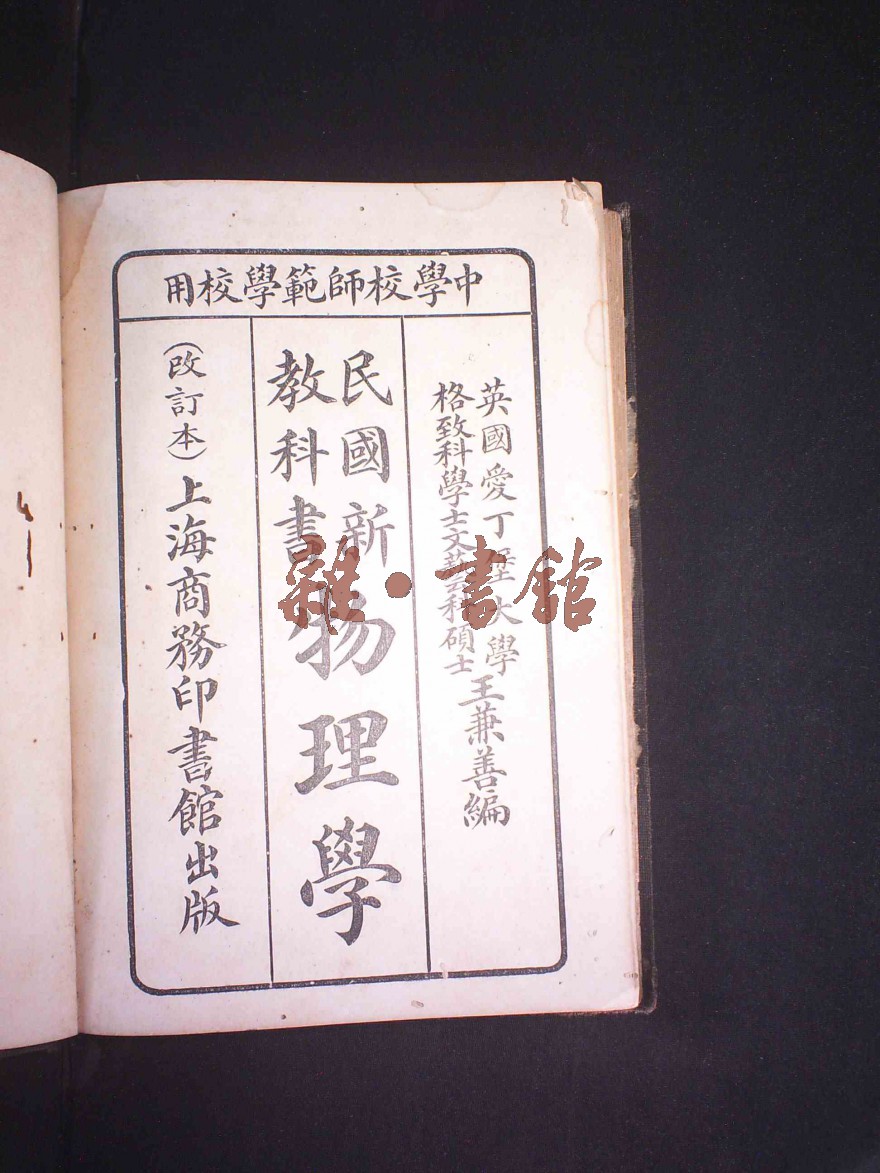 中學校師範學校用
英國愛丁堡大學
格致科學士文藝科碩士
王兼善編
民國新
教科書
物理學
(改訂本)上海商務印書館出版
雜·書館